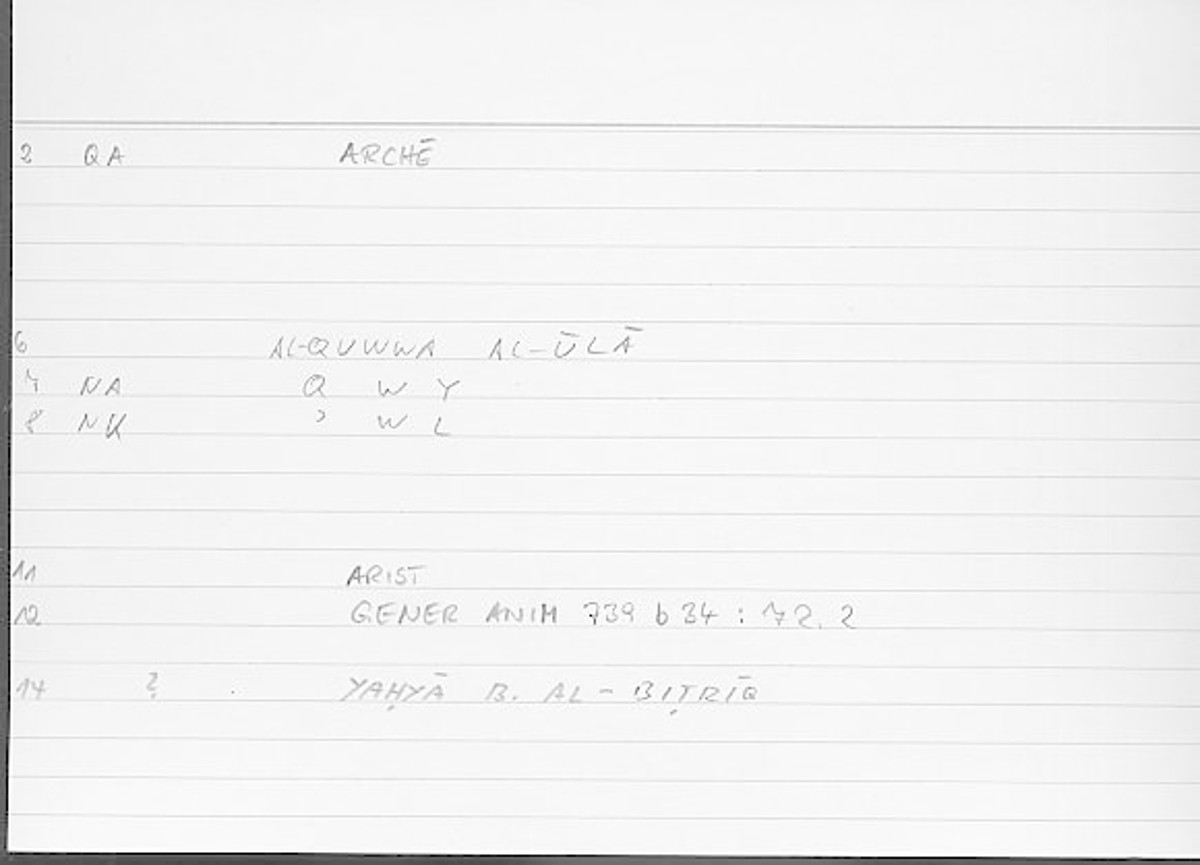 2 QA ARCHĒ
6 AL-QUWWA AL-ŪLĀ
7 NA Q W Y
8 NK ʾ W L
11 ARIST
12 GENER ANIM 739 b 34 : 72.2
14 ? YAḤYĀ B. AL-BIṬRĪQ